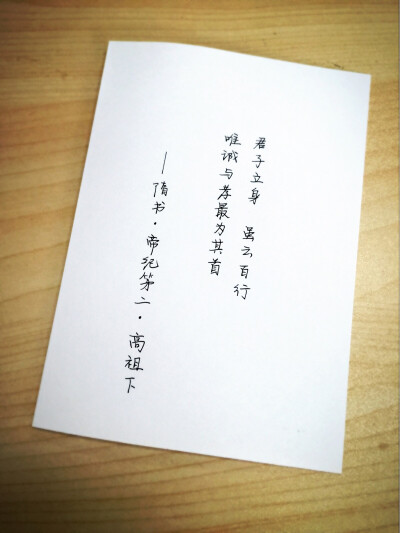 君子立身 虽云百行
唯诚与孝最为其首
—隋书·帝纪第二·高祖下